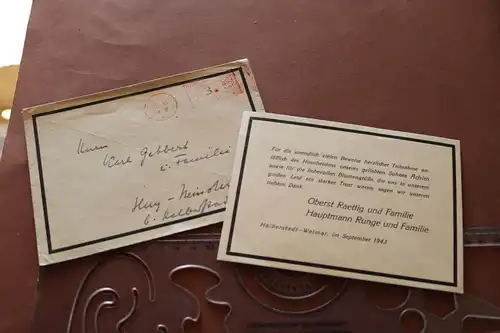 Herrn
Karl Gebbert
u. Familie
Huy-Neinstedt
b. Halberstadt
3
Für die unendlich vielen Beweise herzlicher Teilnahme an-
läßlich des Heimleidens unseres geliebten Sohnes Achim
sowie für die liebevollen Blumengrüße die uns in unserem
großen Leid ein starker Trost waren, sagen wir unseren
tiefsten Dank.
Oberst Raettig und Familie
Hauptmann Runge und Familie
Halberstadt-Weimar, im September 1943